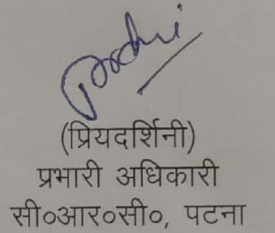 (प्रियदर्शिनी)
प्रभारी अधिकारी
सी०आर०सी०, पटना